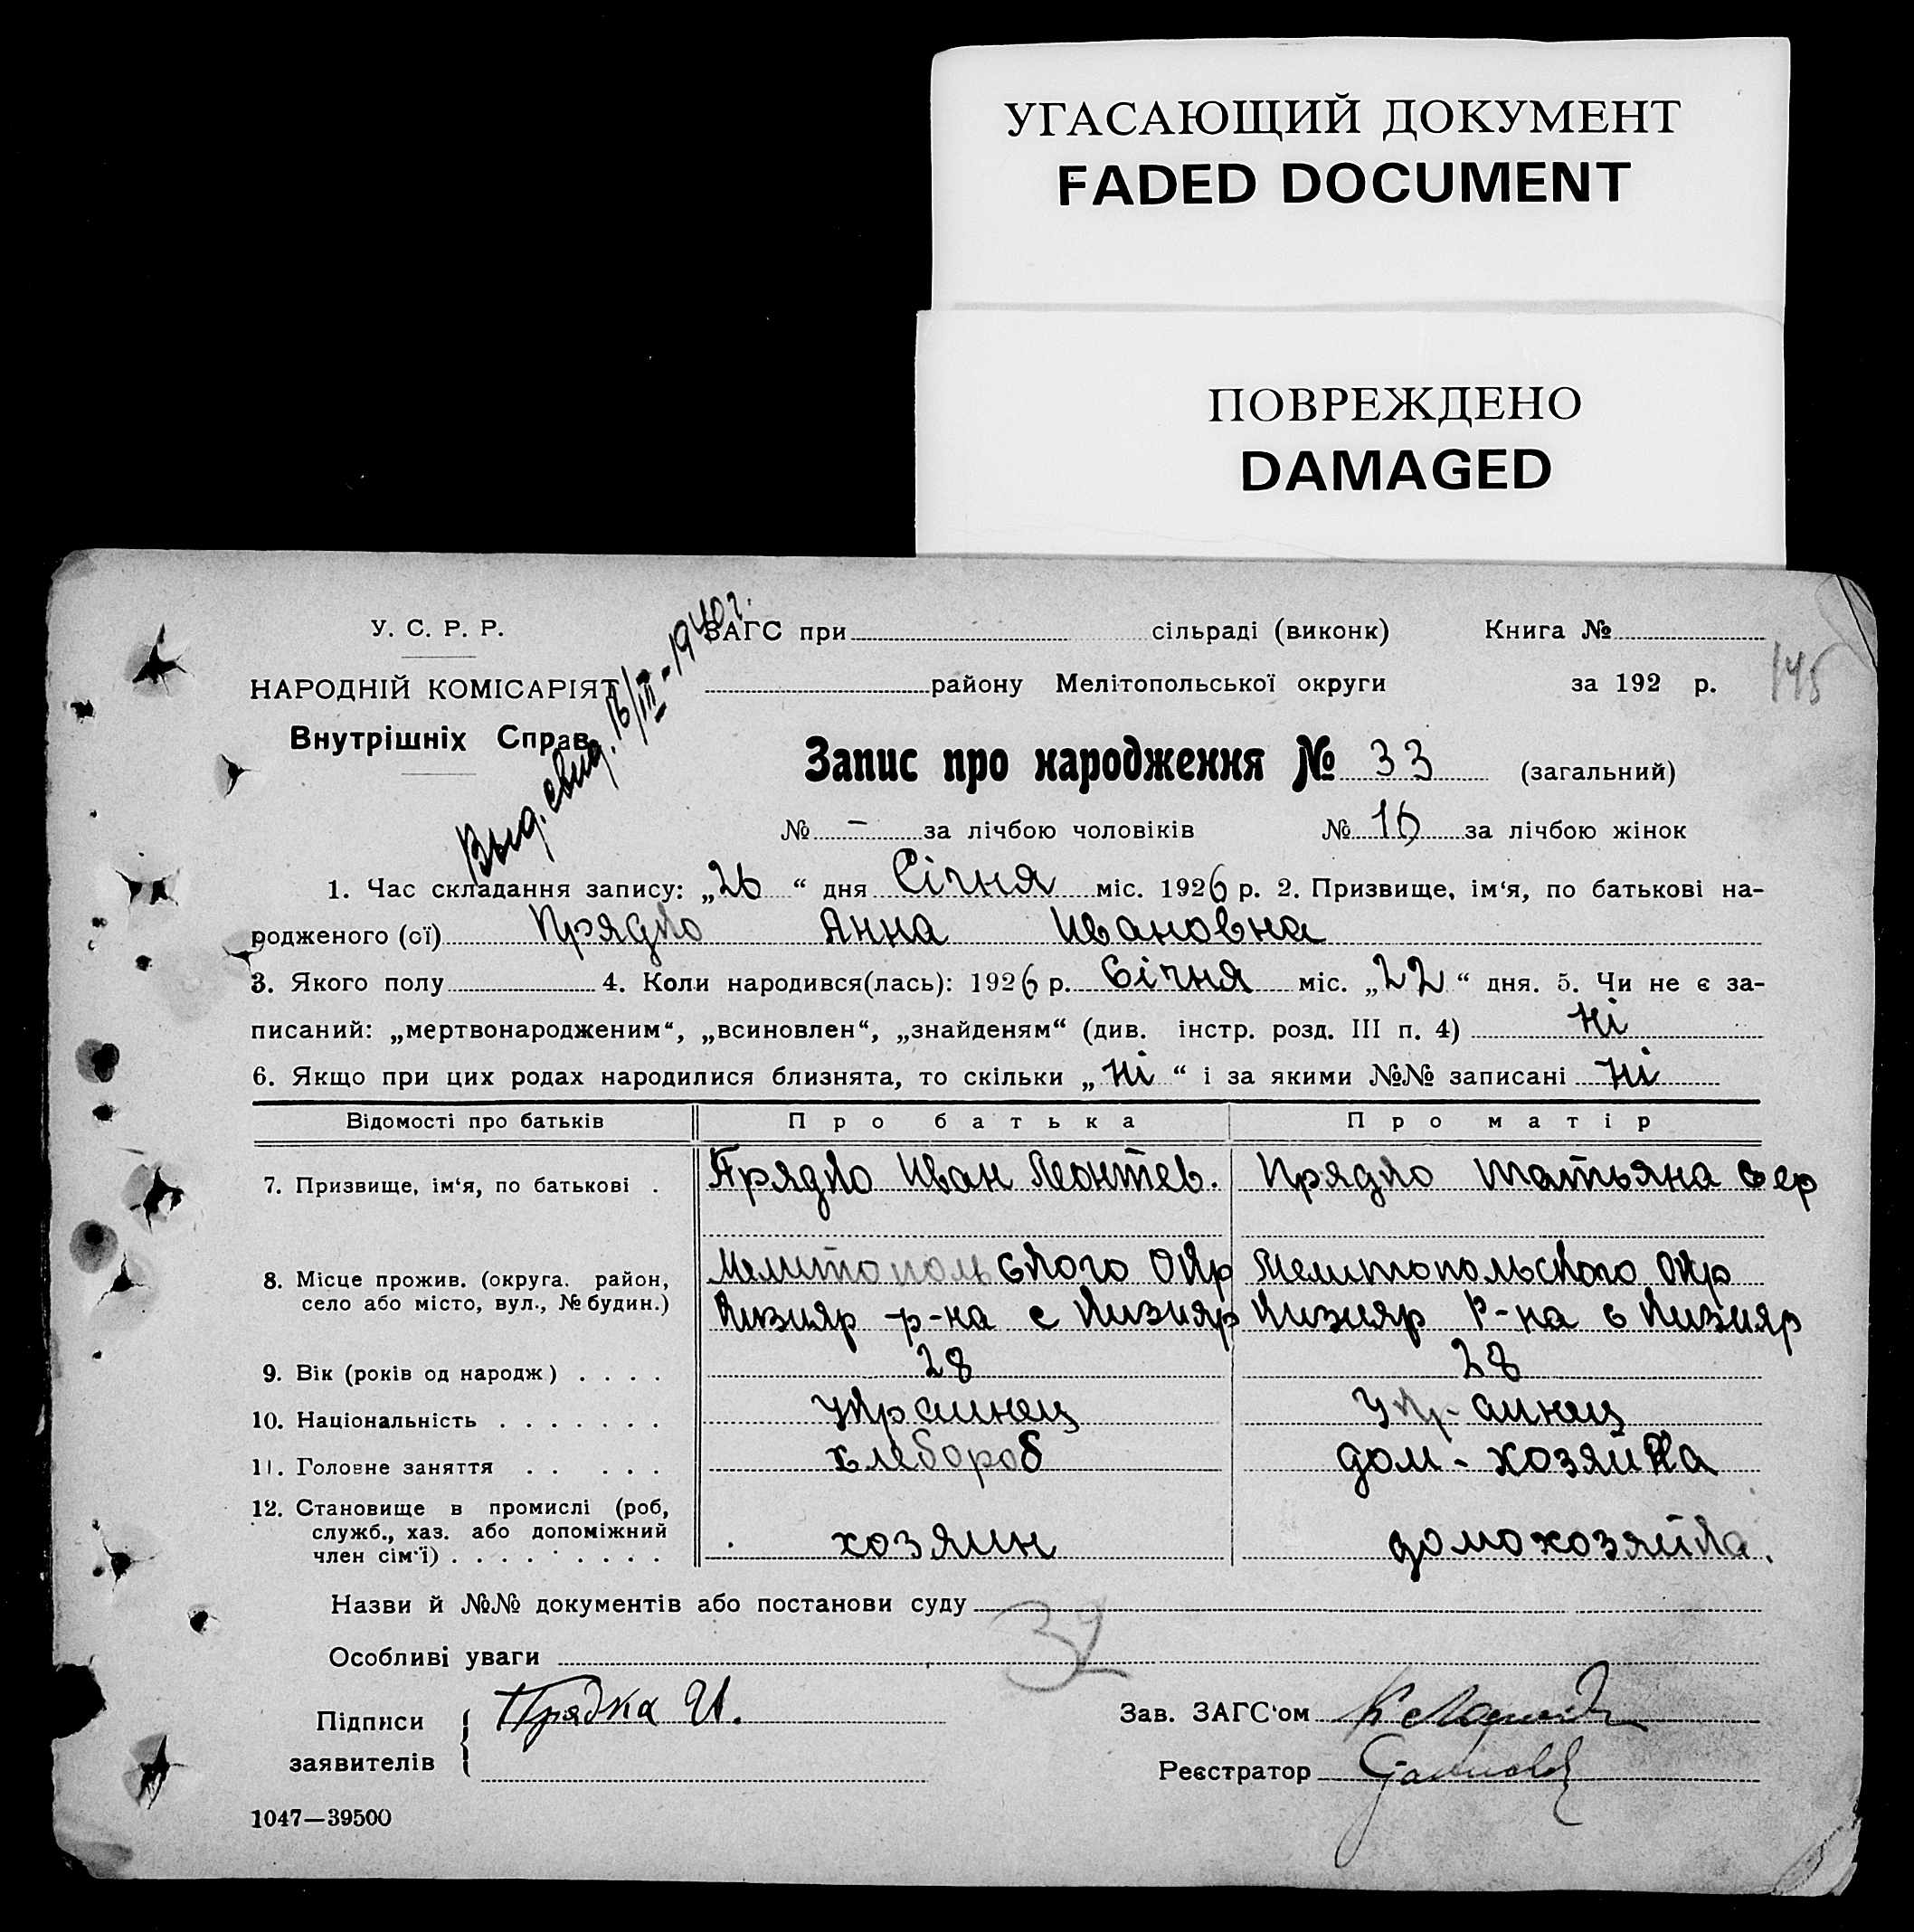 УГАСАЮЩИЙ ДОКУМЕНТ
FADED DOCUMENT
ПОВРЕЖДЕНО
DAMAGED
У. С. Р. Р.
НАРОДНІЙ КОМІСАРІЯТ
Внутрішніх Справ
Выд. свид. 16/III-1940 г.
ЗАГС при сільраді (виконк) Книга №
району Мелітопольської округи за 192 р.
145
Запис про народження № 33 (загальний)
№ - за лічбою чоловіків № 16 за лічбою жінок
1. Час складання запису: „26“ дня Січня міс. 1926 р. 2. Призвище, ім‘я, по батькові на-
родженого (ої) Прядко Анна Ивановна
3. Якого полу 4. Коли народився(лась): 1926 р. Січня міс. „22“ дня. 5. Чи не є за-
писаний: „мертвонародженим“, „всиновлен“, „знайденям“ (див. інстр. розд. III п. 4) ні
6. Якщо при цих родах народилися близнята, то скільки „ні“ і за якими №№ записані ні
Відомості про батьків Про батька Про матір
7. Призвище, ім‘я, по батькові . Прядко Иван Леонтев. Прядко Татьяна Сер
8. Місце прожив. (округа. район, Мелитопольского Окр Мелитопольского Окр
село або місто, вул., № будин.) Кизияр р-на с Кизияр Кизияр р-на с Кизияр
9. Вік (років од народж) . . . . 28 28
10. Національність . . . . . . . украинец укр-аинец
11. Головне заняття . . . . . хлебороб дом-хозяйка
12. Становище в промислі (роб,
служб., хаз. або допоміжний
член сім‘ї) . . . . . . . . . хозяин домохозяйка.
Назви й №№ документів або постанови суду
32
Особливі уваги
Підписи Прядка И. Зав. ЗАГС‘ом
заявителів Реєстратор
1047—39500